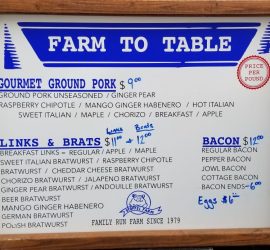 FARM TO TABLE
PRICE PER POUND
GOURMET GROUND PORK $9.00
GROUND PORK UNSEASONED / GINGER PEAR
RASPBERRY CHIPOTLE / MANGO GINGER HABENERO / HOT ITALIAN
SWEET ITALIAN / MAPLE / CHORIZO / BREAKFAST / APPLE
Links Brats
LINKS & BRATS $11.00 + 12.00
BREAKFAST LINKS = REGULAR / APPLE / MAPLE
SWEET ITALIAN BRATWURST / RASPBERRY CHIPOTLE
BRATWURST / CHEDDAR CHEESE BRATWURST
CHORIZO BRATWURST / JALAPENO BRATWURST
GINGER PEAR BRATWURST / ANDOUILLE BRATWURST
BEER BRATWURST
MANGO GINGER HABENERO
GERMAN BRATWURST
POLISH BRATWURST
BACON $12.00
REGULAR BACON
PEPPER BACON
JOWL BACON
COTTAGE BACON
BACON ENDS=6.00
Eggs $6.00
FAMILY RUN FARM SINCE 1979